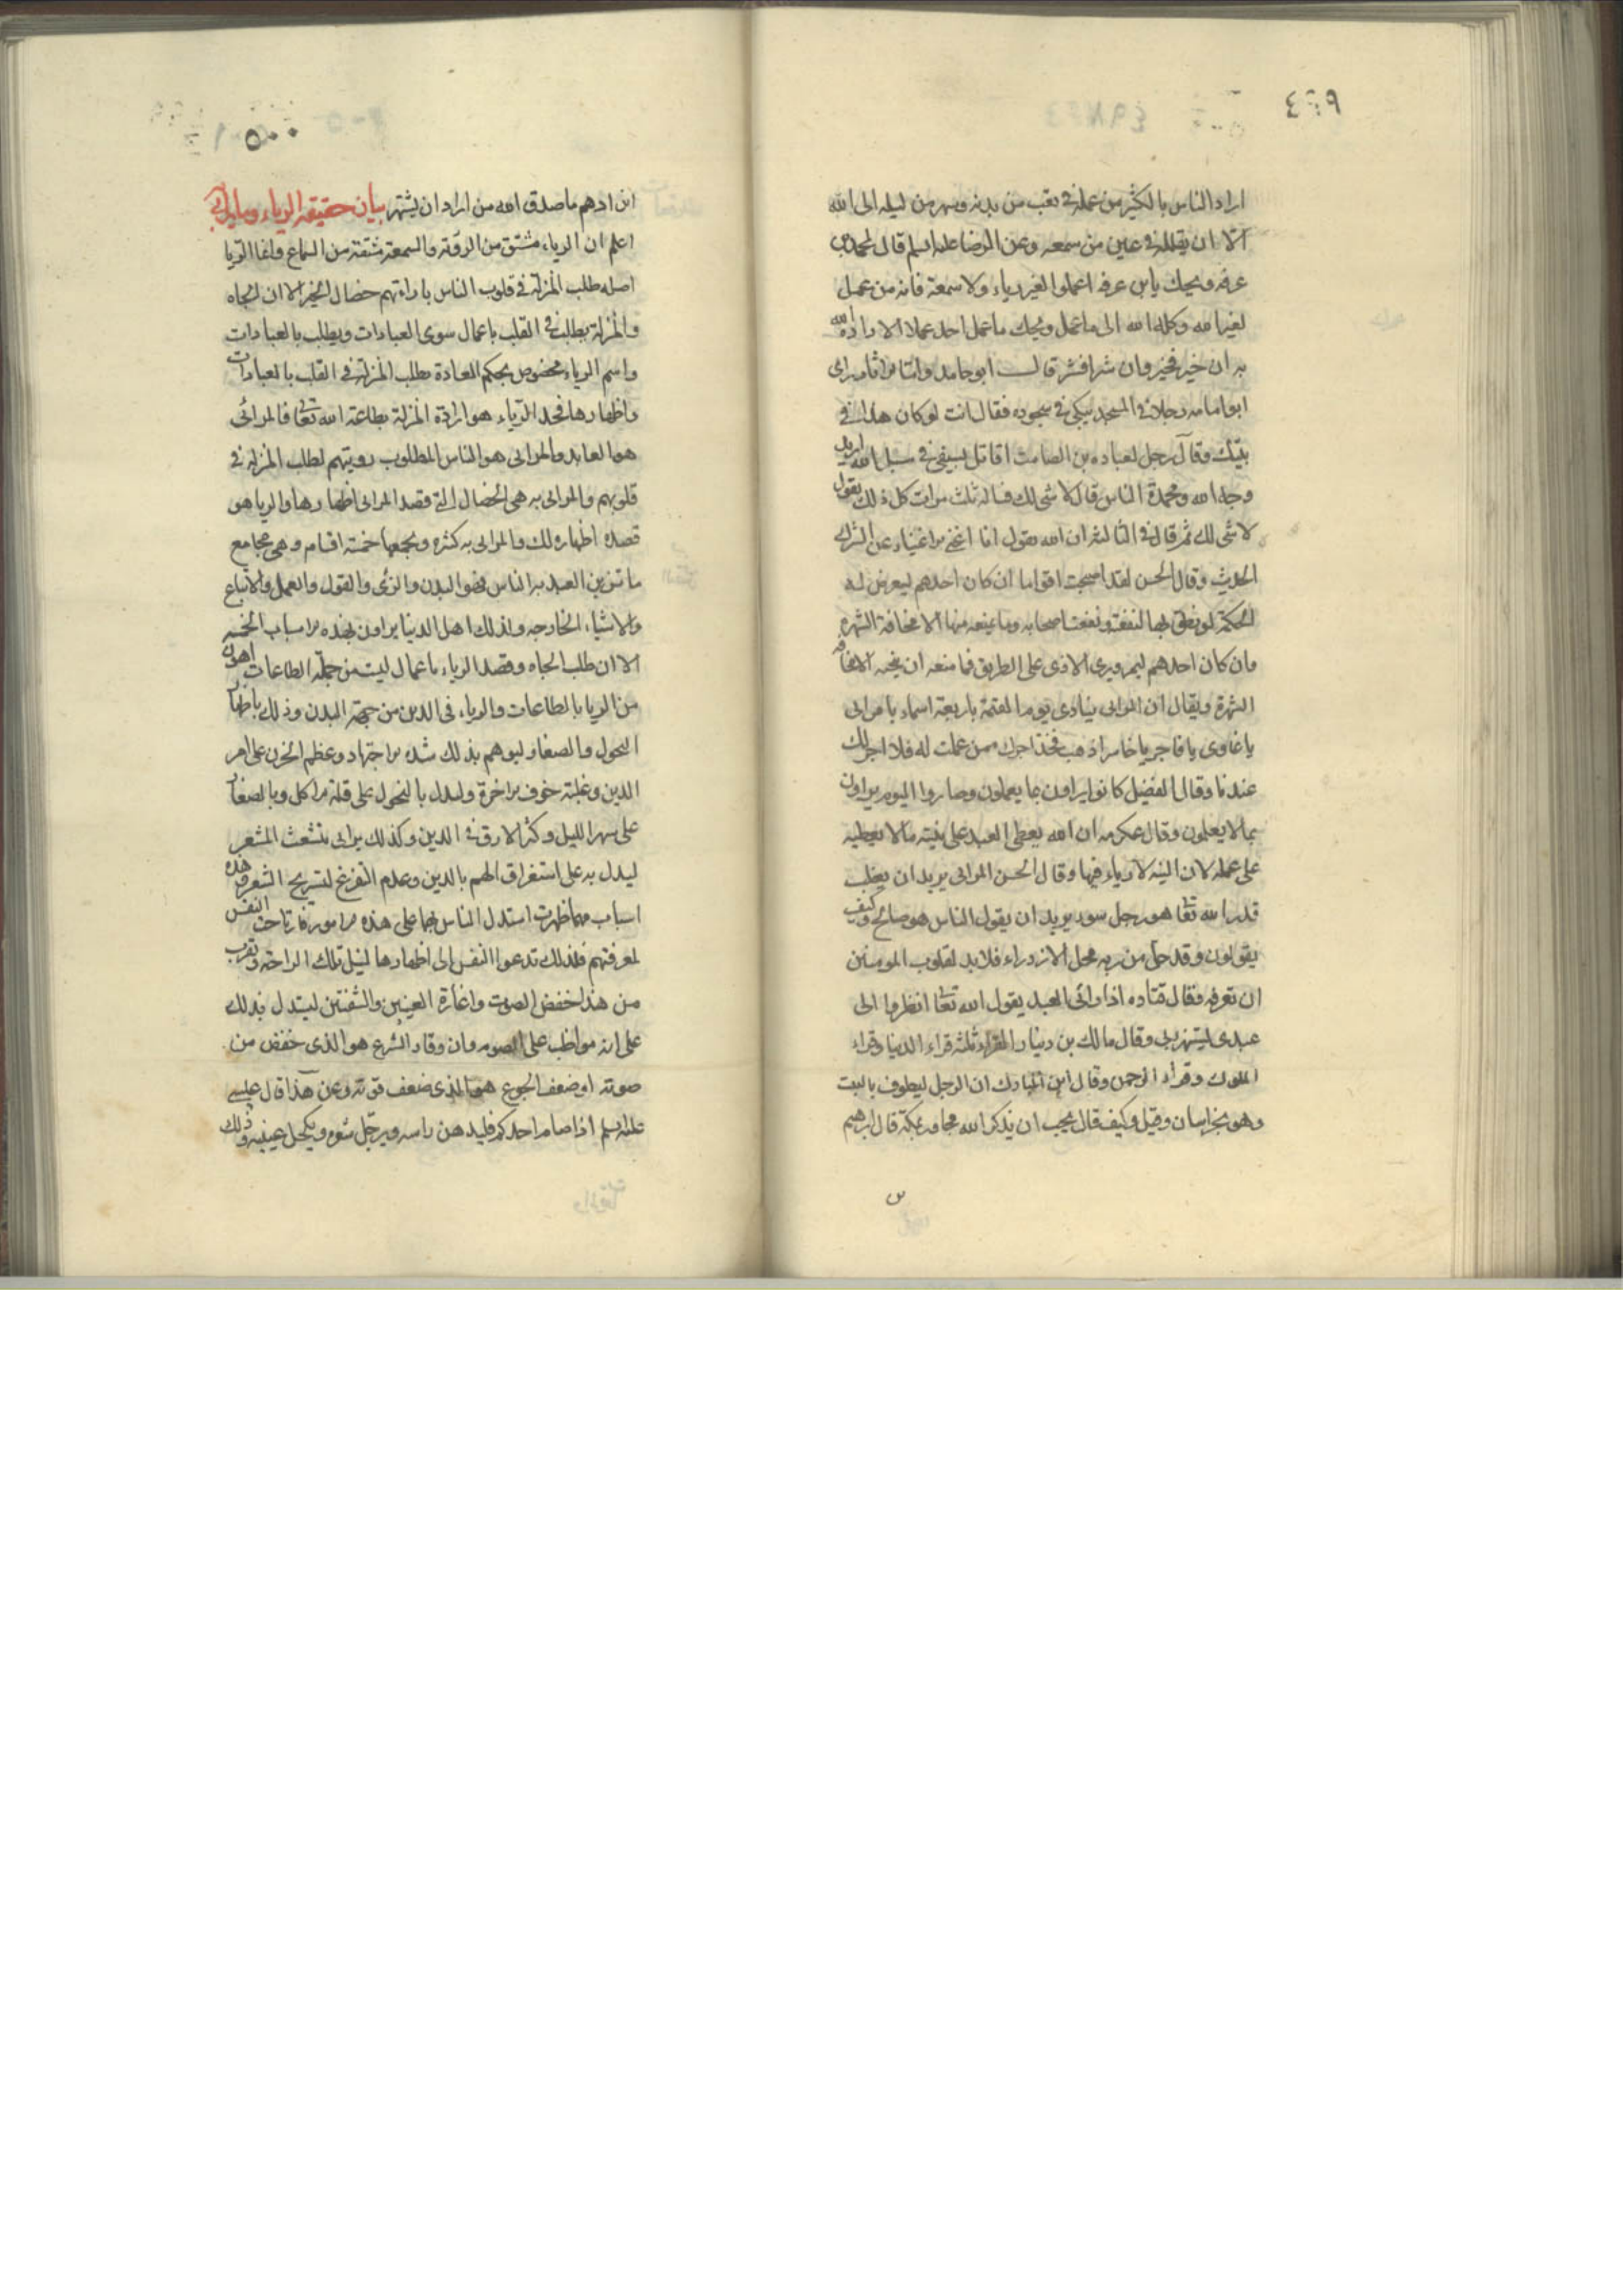 ٤٩٩
اراد الناس بالكثير من عمله في تعب من بدنه وسهر من ليله ابى الله
الا ان يقلله في عين من سمعه وعن الرضا عليه السلم قال لمحمد بن
عرفه ويحك يابن عرفه اعملوا لغير رياء ولا سمعة فانه من عمل
لغير الله وكله الله الى ما عمل ويحك ما عمل احد عملا الا رداه الله
به ان خير فخير وان شرا فشر قال ابو حامد واما الاثار راى
ابو امامه رجلا في المسجد يبكي في سجوده فقال انت لو كان هذا في
بيتك وقال رجل لعباده بن الصامت اقاتل بسيفي في سبيل الله اريد
وجه الله ومحمدة الناس قال لا شى لك فساله ثلث مرات كل ذلك يقول
لا شى لك ثم قال في الثالثه ان الله يقول انا اغنى الاغنياء عن الشرك
الحديث وقال الحسن لقد اصحبت اقواما ان كان احدهم ليعرض له
الحكمة لو نطق بها لنفعته ونفعت اصحابه وما يمنعه منها الا مخافة الشهره
وان كان احدهم ليمر ويرى الاذى على الطريق فما منعه ان ينحيه الا مخافه
الشهرة ويقال ان المرائى ينادى يوم القيمة باربعة اسماء يا مرائى
يا غاوى يا فاجر يا خاسر اذهب فخذ اجرك ممن عملت له فلا اجر لك
عندنا وقال الفضيل كانوا يراون بما يعملون وصاروا اليوم يراون
بما لا يعملون وقال عكرمه ان الله يعطى العبد على نيته مالا يعطيه
على عمله لان النيه لا رياء فيها وقال الحسن المرائى يريد ان يغلب
قدر الله تعا هو رجل سوء يريد ان يقول الناس هو صالح وكيف
يقولون وقد حل من ربه محل الازدراء فلابد لقلوب المومنين
ان تعرفه وقال قتاده اذا رائى العبد يقول الله تعا انظروا الى
عبدى يستهزئ بى وقال مالك بن دينار القراء ثلثه قراء الدنيا وقراء
الملوك وقراء الرحمن وقال ابن المبارك ان الرجل ليطوف بالبيت
وهو بخراسان وقيل وكيف قال يحب ان يذكر انه مجاور بمكة قال ابرهيم
٥٠٠
ابن ادهم ما صدق الله من اراد ان يشتهر بيان حقيقة الرياء وما يراى به
اعلم ان الرياء مشتق من الروية والسمعة مشتقة من السماع وانما الريا
اصله طلب المنزلة في قلوب الناس باراءتهم خصال الخير الا ان الجاه
والمنزلة يطلب في القلب باعمال سوى العبادات ويطلب بالعبادات
واسم الرياء مخصوص بحكم العادة بطلب المنزلة في القلب بالعبادات
واظهارها فحد الرياء هو ارادة المنزلة بطاعة الله تعا فالمرائى
هو العابد والمرائى هو الناس المطلوب رويتهم لطلب المنزله في
قلوبهم والمرائى به هي الخصال التي قصد المرائى اظهارها والريا هو
قصده اظهار ذلك والمرائى به كثيره ويجمعها خمسة اقسام وهي مجامع
ما يتزين العبد به للناس فهو البدن والزى والقول والعمل والاتباع
والاشياء الخارجه وكذلك اهل الدنيا يراون بهذه الاسباب الخمسه
الا ان طلب الجاه وقصد الرياء باعمال ليست من جملة الطاعات اهون
من الريا بالطاعات والرياء في الدين من جهة البدن وذلك باظهار
النحول والصفار ليوهم بذلك شده الاجتهاد وعظم الحزن على امر
الدين وغلبة خوف الاخرة وليدل بالنحول على قلة الاكل وبالصفار
على سهر الليل وكثرة الارق في الدين وكذلك يرائى بتشعث الشعر
ليدل به على استغراق الهم بالدين وعدم التفرغ لتسريح الشعر وهذه
اسباب مهما ظهرت استدل الناس بها على هذه الامور فارتاحت النفس
لمعرفتهم فلذلك تدعوا النفس الى اظهارها لنيل تلك الراحة ويقرب
من هذا خفض الصوت واغارة العينين والشفتين ليستدل بذلك
على انه مواظب على الصوم وان وقار الشرع هو الذى خفض من
صوته او ضعف الجوع هو الذى ضعف قوته وعن هذا قال عيسى
عليه السلم اذا صام احدكم فليدهن راسه ويرجل شعره ويكحل عينيه وذلك